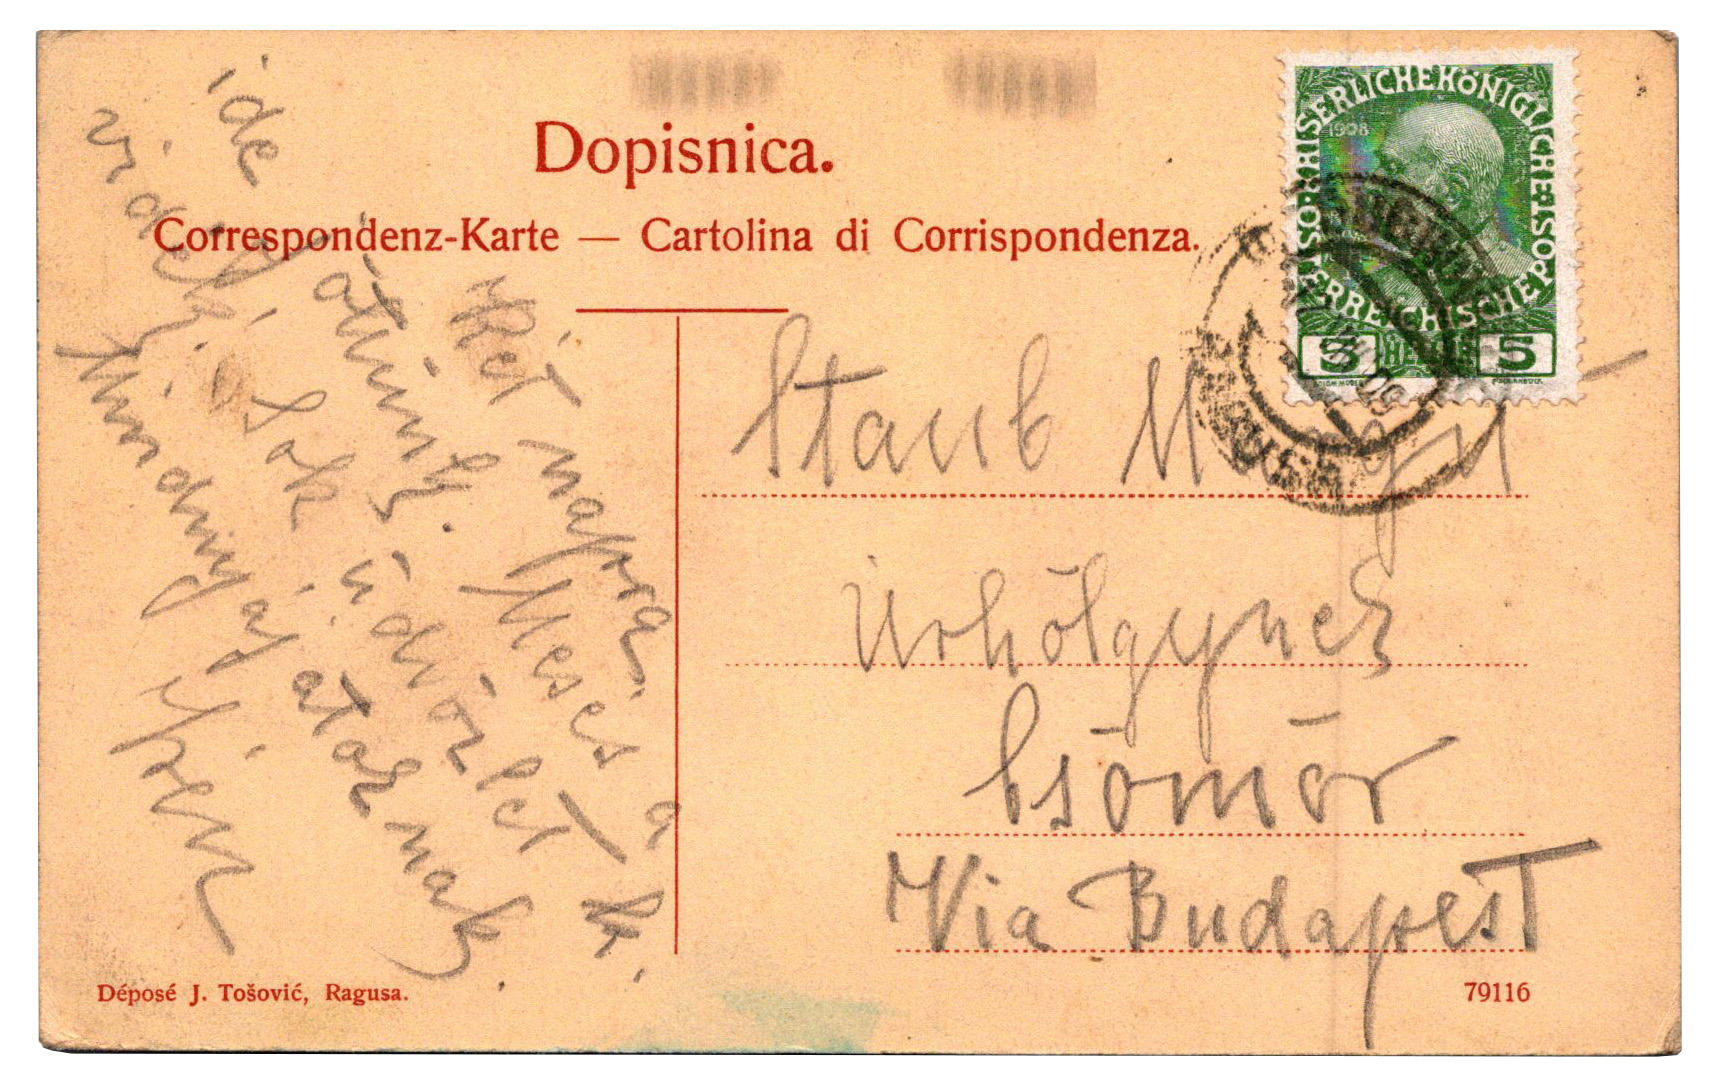 Dopisnica.
Correspondenz-Karte — Cartolina di Corrispondenza.
KAISERLICHE KÖNIGLICHE ÖSTERREICHISCHE POST
1908
5 HELLER 5
Két napra
ide jötünk. Mesés a
vidék! Sok üdvözlet k.
Mindnyájatoknak.
Irén
Staub
Úrhölgynek
Csömör
Via Budapest
Déposé J. Tošović, Ragusa.
79116